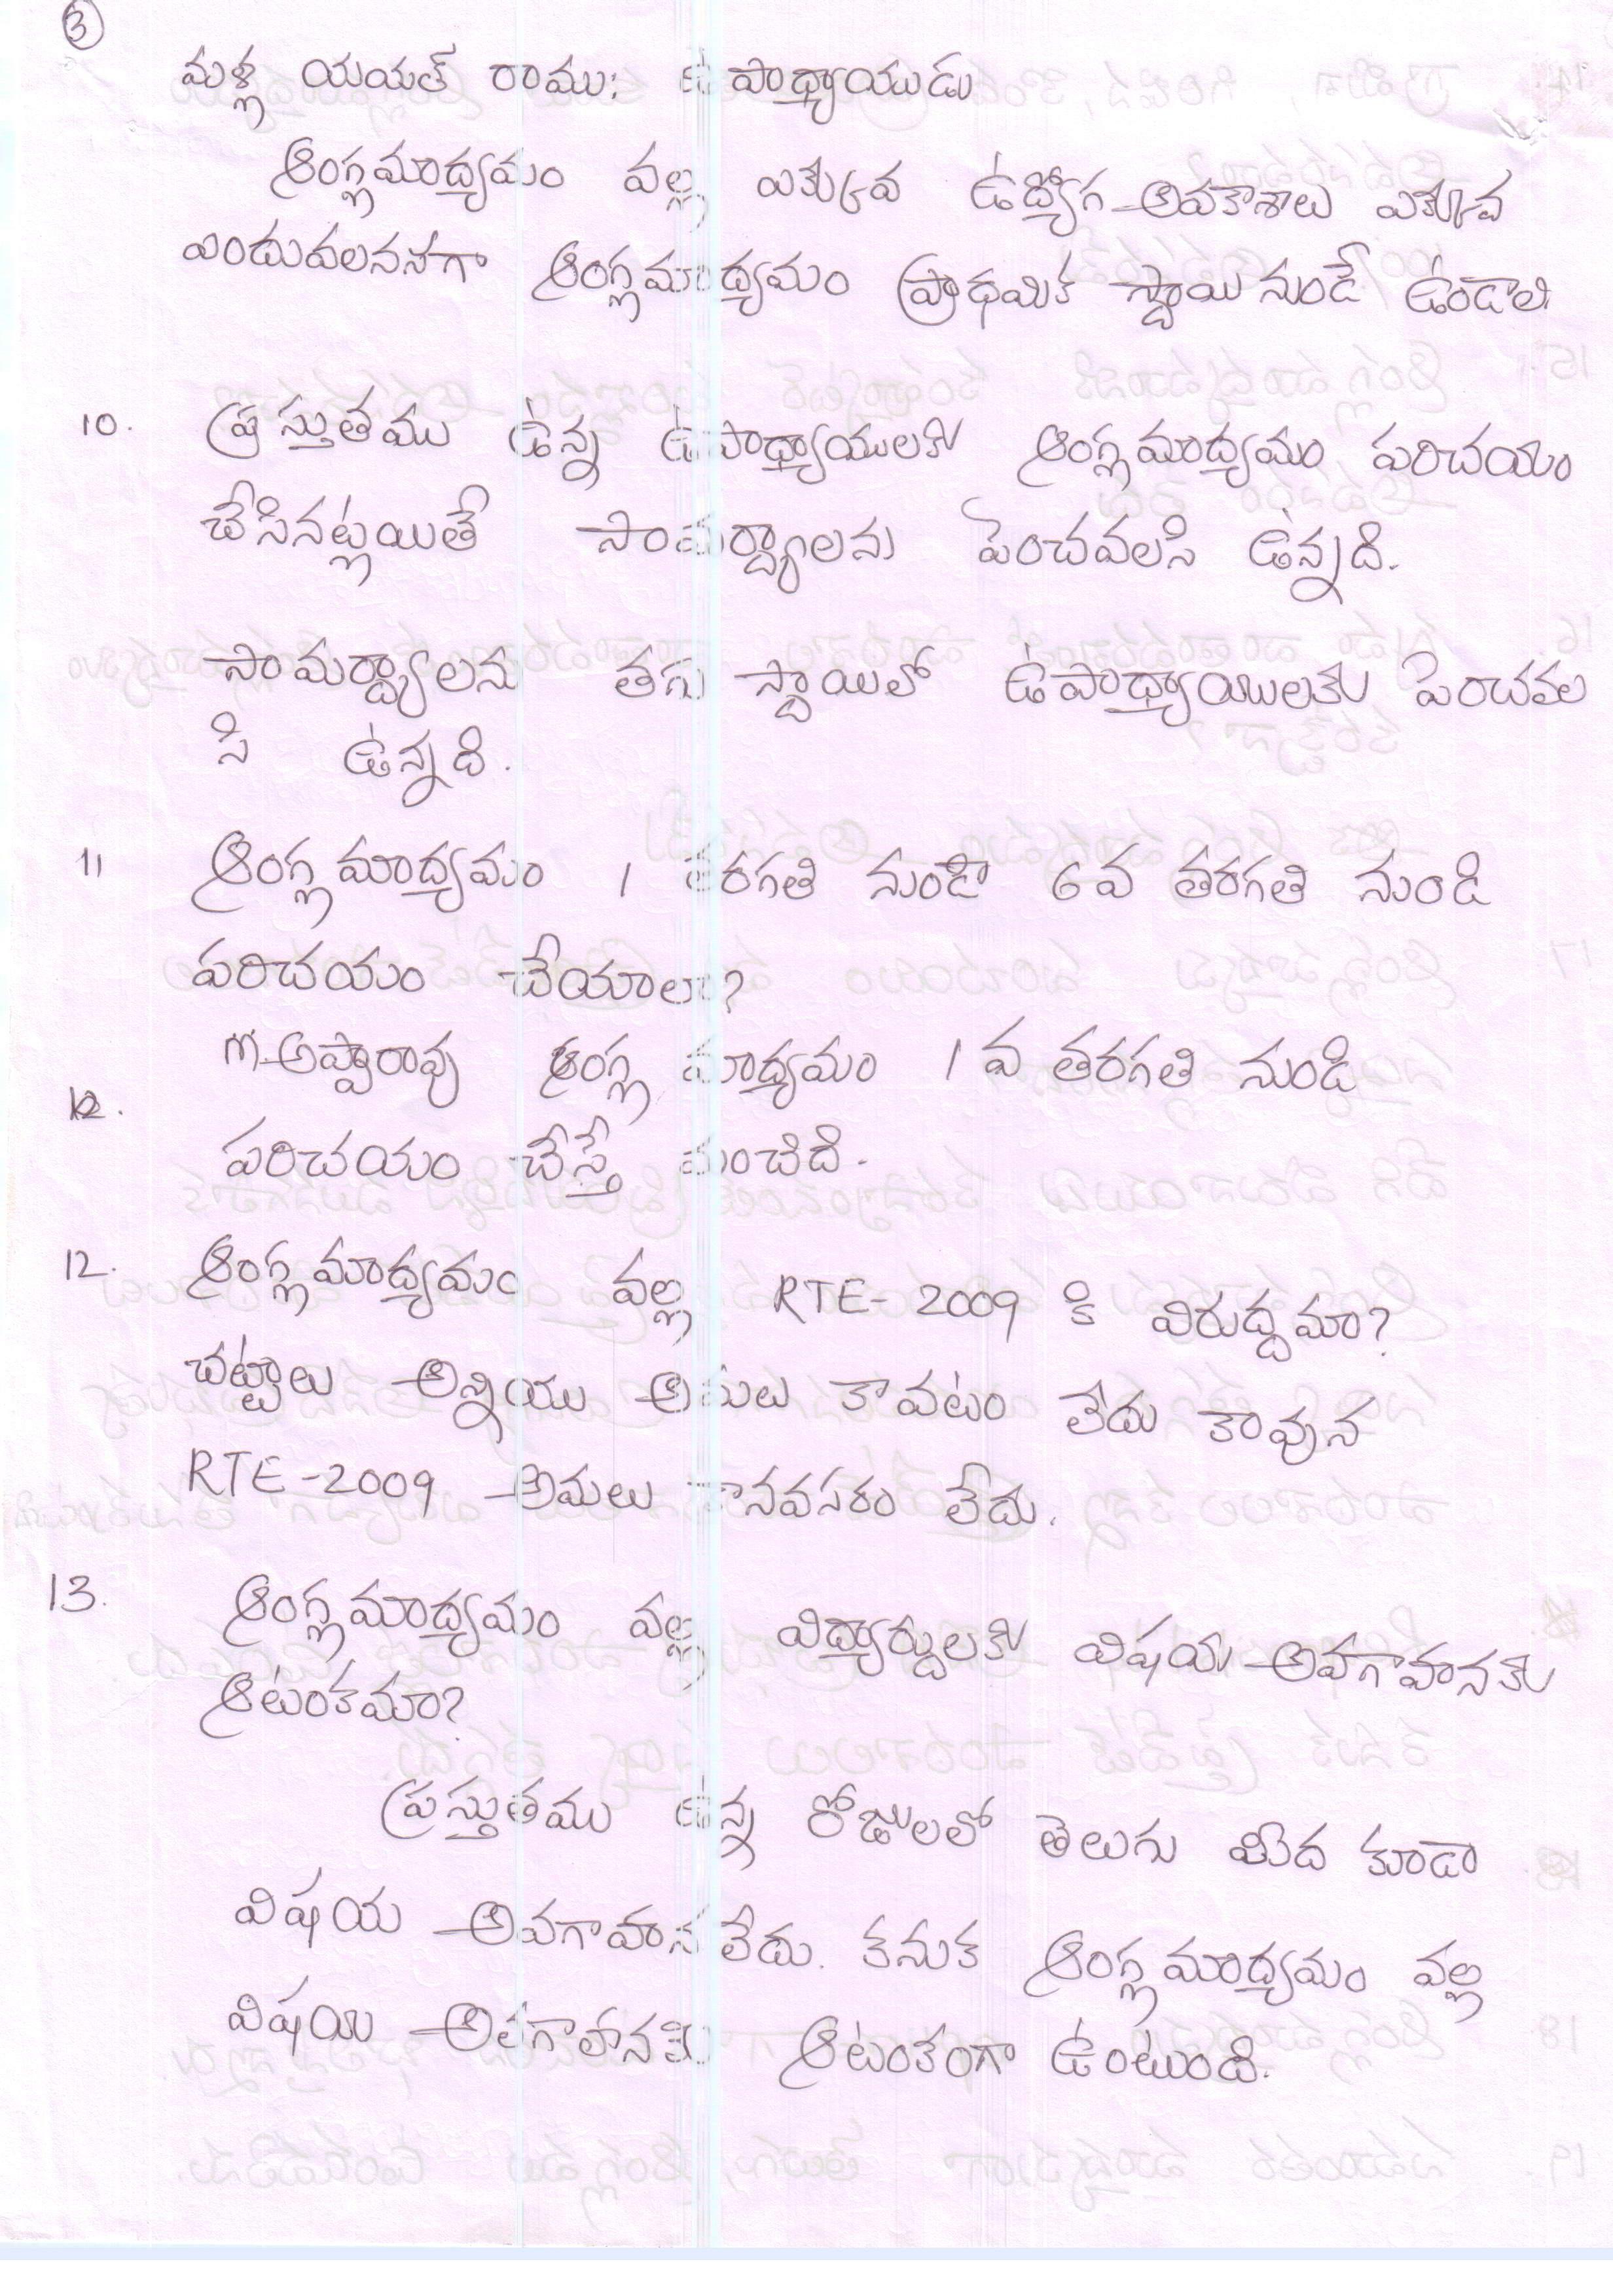 3
మళ్ల యయత్ రాము: ఉపాధ్యాయుడు
ఆంగ్లమాధ్యమం వల్ల ఎక్కువ ఉద్యోగ అవకాశాలు ఎక్కువ
ఎందువలననగా ఆంగ్లమాధ్యమం ప్రాథమిక స్థాయి నుండే ఉండాలి
10. ప్రస్తుతము ఉన్న ఉపాధ్యాయులకు ఆంగ్లమాధ్యమం పరిచయం
చేసినట్లయితే సామర్ధ్యాలను పెంచవలసి ఉన్నది.
సామర్ధ్యాలను తగు స్థాయిలో ఉపాధ్యాయులకు పెంచవల
సి ఉన్నది.
11 ఆంగ్లమాధ్యమం 1 తరగతి నుండి 6వ తరగతి నుండి
పరిచయం చేయాలా?
m.అప్పారావు ఆంగ్ల మాధ్యమం 1వ తరగతి నుండి
12.
పరిచయం చేస్తే మంచిది.
12. ఆంగ్లమాధ్యమం వల్ల RTE-2009 కి విరుద్దమా?
చట్టాలు అన్నియు అమలు కావటం లేదు కావున
RTE-2009 అమలు కానవసరం లేదు.
13. ఆంగ్లమాధ్యమం వల్ల విద్యార్ధులకు విషయ అవగాహనకు
ఆటంకమా?
ప్రస్తుతము ఉన్న రోజులలో తెలుగు మీద కూడా
విషయ అవగాహన లేదు. కనుక ఆంగ్లమాధ్యమం వల్ల
విషయ అవగాహనకు ఆటంకంగా ఉంటుంది.